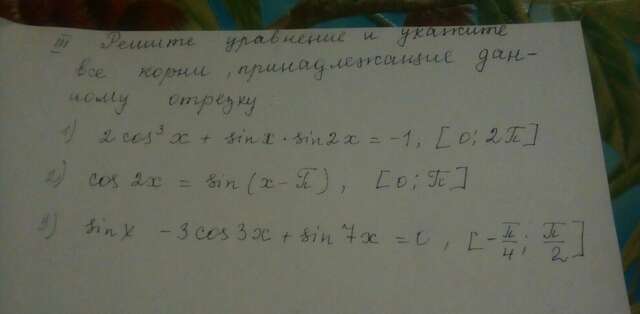 III Решите уравнение и укажите
все корни, принадлежащие дан-
ному отрезку
1) 2cos³x + sinx·sin2x = -1, [0; 2π]
2) cos2x = sin(x-π), [0; π]
3) sinx - 3cos3x + sin7x = 0, [-π/4; π/2]